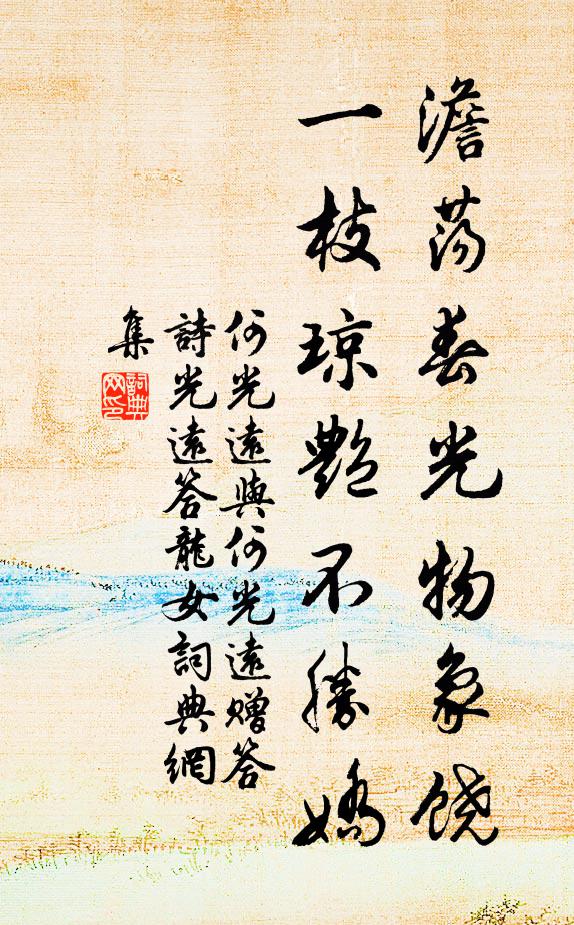 澹荡春光物象饶
一枝琼艳不勝嬌
何光遠與何光遠贈答
詩光遠答龍女詞典網
集
詞典
网印